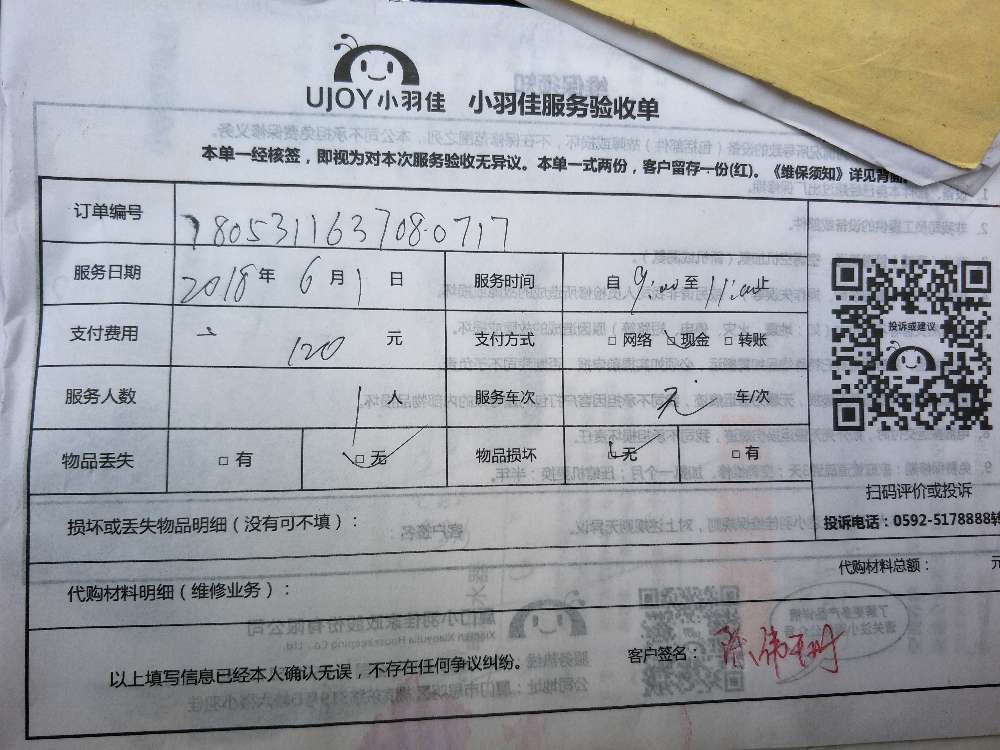 UJOY小羽佳 小羽佳服务验收单
本单一经核签，即视为对本次服务验收无异议。本单一式两份，客户留存一份(红)。《维保须知》详见背面
订单编号 180531163708-0717
服务日期 2018年6月1日 服务时间 自9:00至11:00止
支付费用 120元 支付方式 □网络 □现金 □转账
服务人数 1人 服务车次 无 车/次
物品丢失 □有 □无 物品损坏 □无 □有
投诉或建议
扫码评价或投诉
投诉电话：0592-5178888转
损坏或丢失物品明细（没有可不填）：
代购材料明细（维修业务）： 代购材料总额： 元
以上填写信息已经本人确认无误，不存在任何争议纠纷。 客户签名：